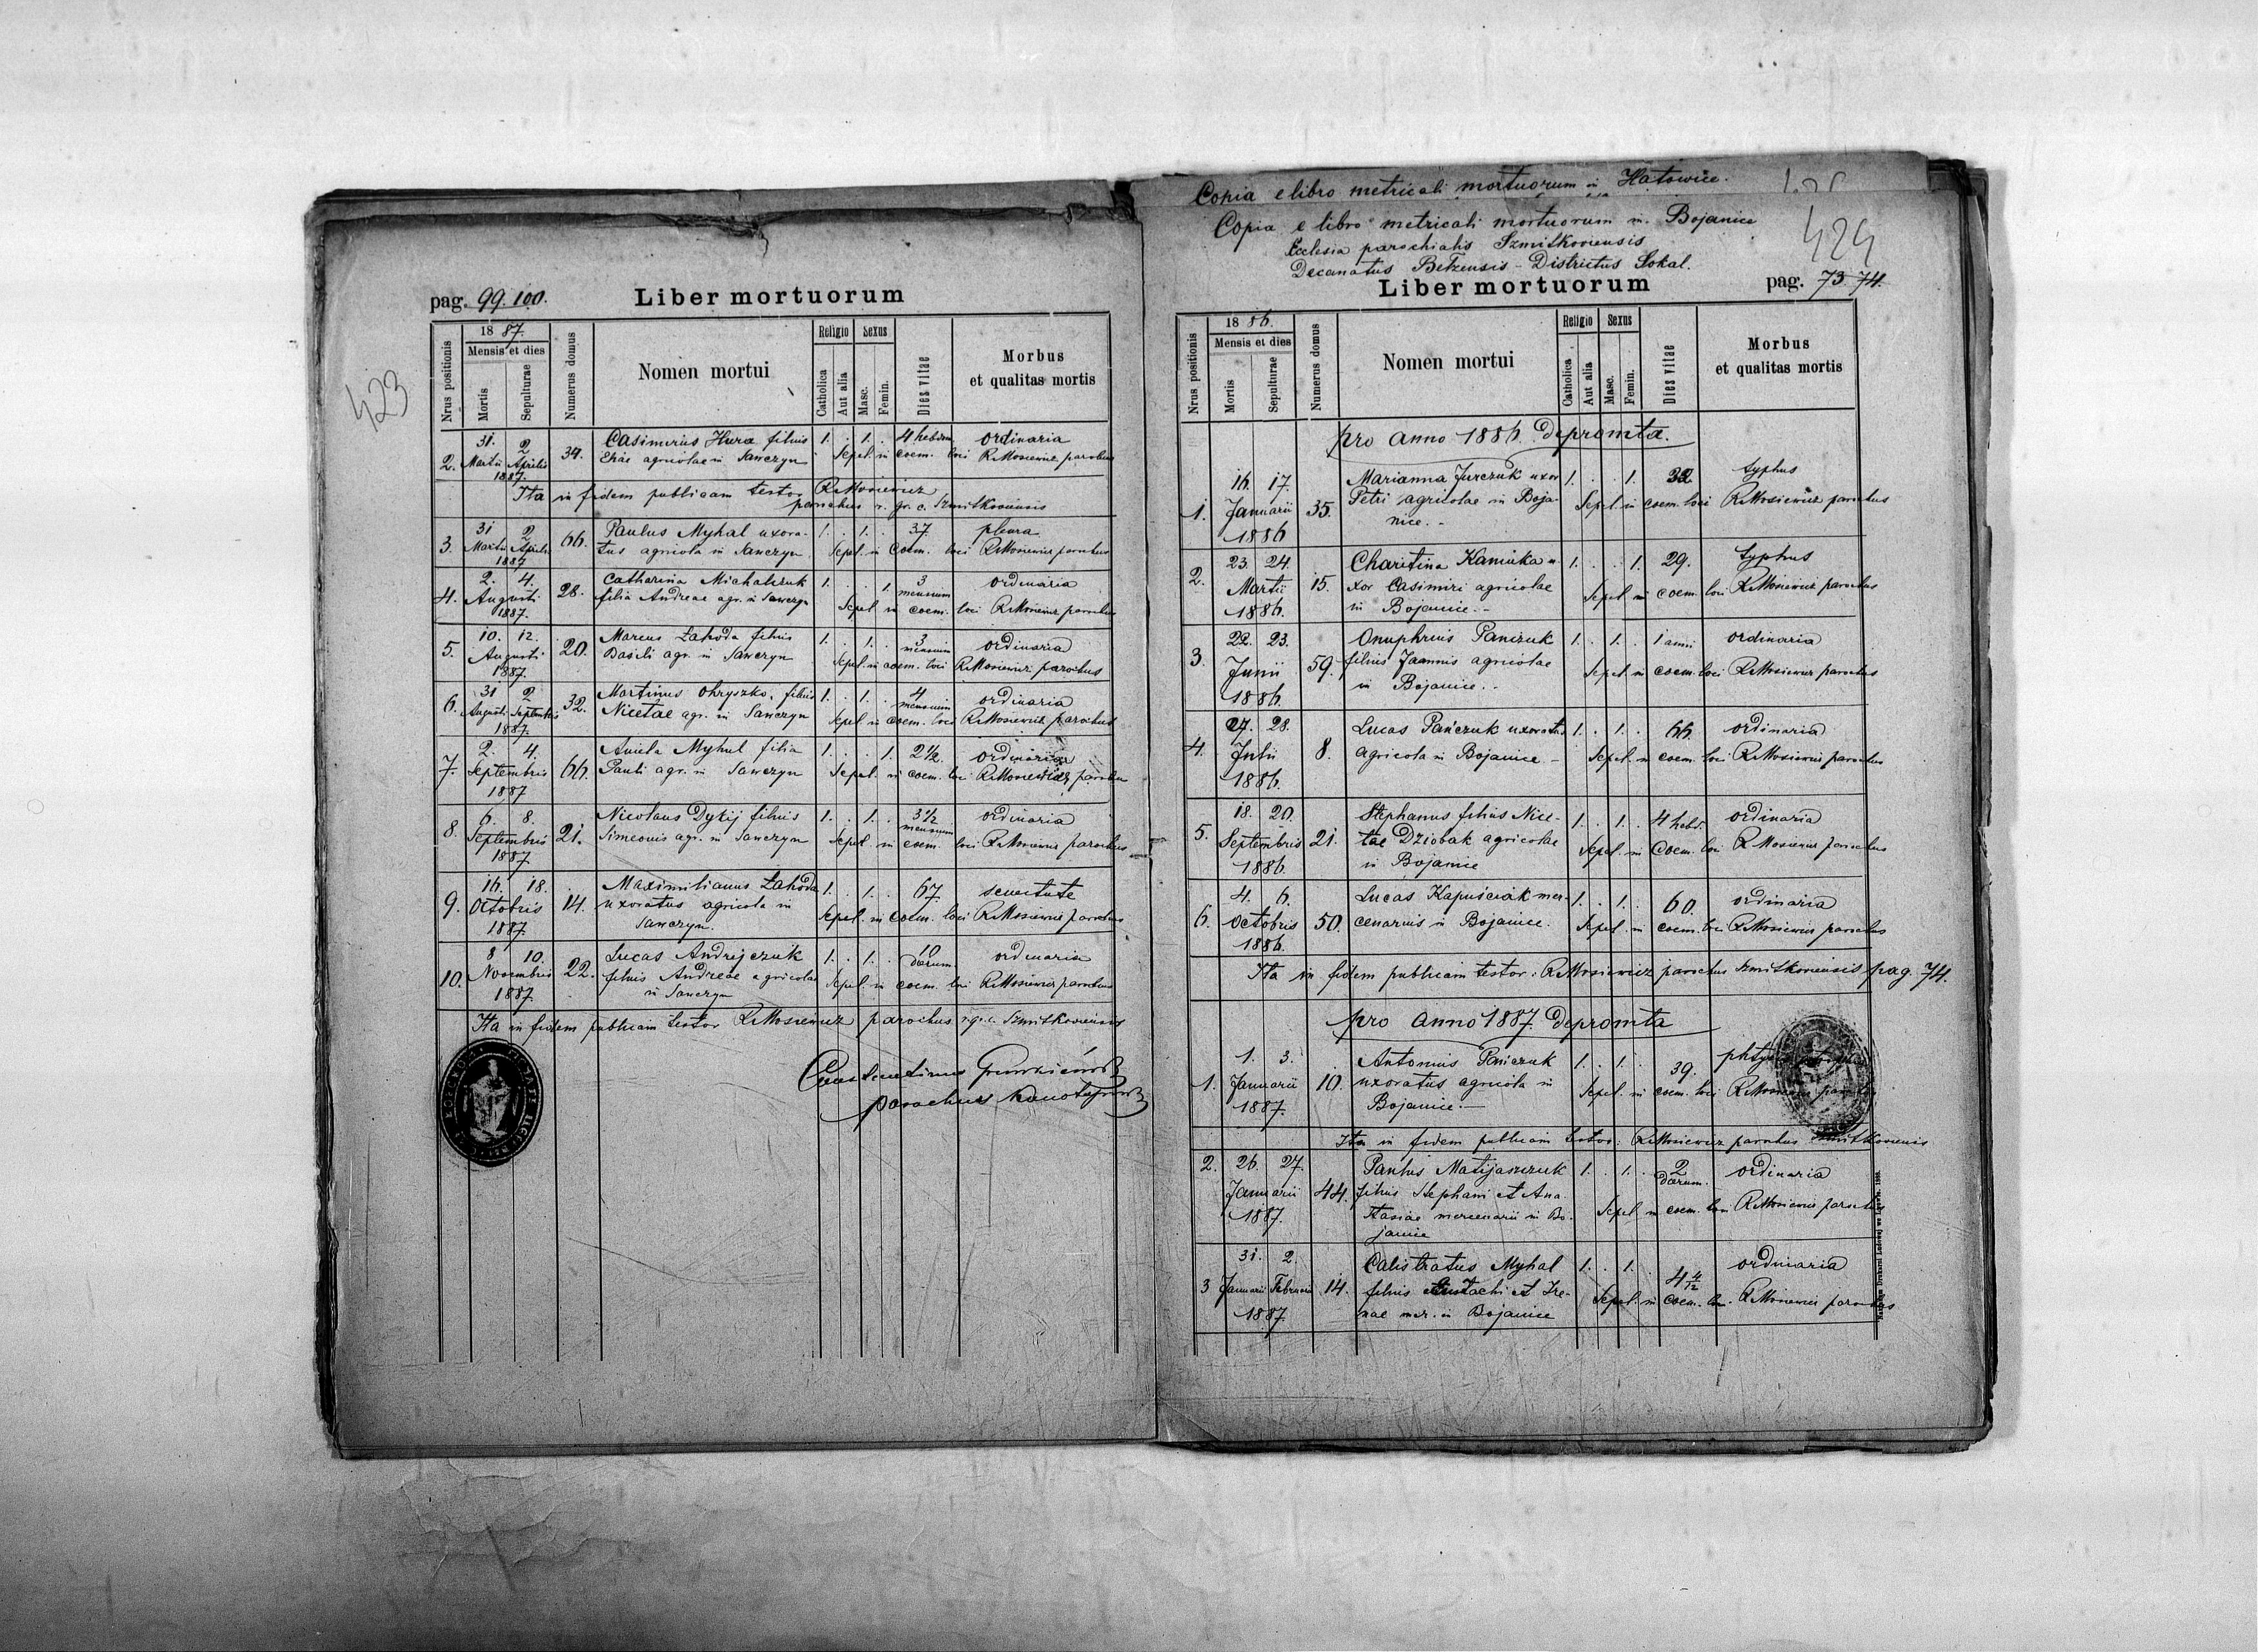 423
pag. 99. 100.
Liber mortuorum
Nrus positionis
18 87.
Mensis et dies
Mortis
Sepulturae
Numerus domus
Nomen mortui
Religio
Catholica
Aut alia
Sexus
Masc.
Femin.
Dies vitae
Morbus
et qualitas mortis
2. 31. Martii 2 Aprilis 1887. 34. Casimirus Hura filius 1. . 1. . 4 hebdom ordinaria
Eliae agricolae in Sawczyn Sepel. in coem. loci R.Mosiewicz parochus
Ita in fidem publicam testor R.Mosiewicz
parochus r. gr. c. Szmitkoviensis
3. 31 Martii 2 Aprilis 1887 66. Paulus Myhal uxora- 1. . 1. . 37 pleura
tus agricola in Sawczyn Sepel. in Coem. loci R.Mosiewicz parochus
4. 2. 4. Augusti 1887. 28. Catharina Michalczuk 1. . . 1. 3 mensium ordinaria
filia Andreae agr. in Sawczyn Sepel. in coem. loci R.Mosiewicz parochus
5. 10. 12. Augusti 1887. 20. Marcus Łahoda filius 1. . 1. . 3 mensium ordinaria
Basili agr. in Sawczyn Sepel. in coem. loci R.Mosiewicz parochus
6. 31 Augusti 2 Septembris 1887. 32. Martinus Ohryszko, filius 1. . 1. . 4 mensium ordinaria
Nicetae agr. in Sawczyn Sepel. in coem. loci R.Mosiewicz parochus
7. 2. 4. Septembris 1887 66. Myhal filia 1. . . 1. 2 1/2. ordinaria
Pauli agr. in Sawczyn Sepel. in coem. loci R.Mosiewicz parochus
8. 6. 8. Septembris 1887. 21. Nicolaus Dykij filius 1. . 1. . 3 1/2 mensium ordinaria
Simeonis agr. in Sawczyn Sepel. in coem. loci R.Mosiewicz parochus
9. 16. 18. Octobris 1887. 14. Maximilianus Łahoda 1. . 1. . 67 senectute
uxoratus agricola in Sepel. in coem. loci R.Mosiewicz parochus
Sawczyn.
10. 8 10. Novembris 1887. 22. Lucas Andrejczuk 1. . 1. . 10 dierum ordinaria
filius Andreae agricolae Sepel. in coem. loci R.Mosiewicz parochus
in Sawczyn
Ita in fidem publicam testor R.Mosiewicz parochus r.gr.c. Szmitkoviensis
parochus
Copia e libro metricali mortuorum in Hatowice.
Copia e libro metricali mortuorum in Bojanice
Ecclesia parochialis Szmitkoviensis
Decanatus Bełzensis - Districtus Sokal.
424
Liber mortuorum
pag. 73 74.
Nrus positionis
18 86.
Mensis et dies
Mortis
Sepulturae
Numerus domus
Nomen mortui
Religio
Catholica
Aut alia
Sexus
Masc.
Femin.
Dies vitae
Morbus
et qualitas mortis
pro anno 1886 depromta.
1. 16. 17. Januarii 1886 35. Marianna Jurczuk uxor 1. . . 1. 32 typhus
Petri agricolae in Boja- Sepel. in coem. loci R.Mosiewicz parochus
nice. -
2. 23. 24. Martii 1886. 15. Charitina Kaminka u- 1. . . 1. 29. typhus
xor Casimiri agricolae Sepel. in coem. loci R.Mosiewicz parochus
in Bojanice. -
3. 22. 23. Junii 1886. 59. Onuphrius Panczuk 1. . 1. . 1 anni ordinaria
filius Joannis agricolae Sepel. in coem. loci R.Mosiewicz parochus
in Bojanice. -
4. 27. 28. Julii 1886. 8. Lucas Pańczuk uxoratus 1. . 1. . 66. ordinaria
agricola in Bojanice - Sepel. in coem. loci R.Mosiewicz parochus
5. 18. 20. Septembris 1886. 21. Stephanus filius Nice- 1. . 1. . 4 hebd. ordinaria
tae Dziobak agricolae Sepel. in Coem. loci R.Mosiewicz parochus
in Bojanice
6. 4. 6. Octobris 1886. 50. Lucas Kapuściak mer- 1. . 1. . 60. ordinaria
cenarius in Bojanice. Sepel. in coem. loci R.Mosiewicz parochus
Ita in fidem publicam testor: R.Mosiewicz parochus Szmitkoviensis pag. 74.
pro anno 1887 depromta
1. 1. 3. Januarii 1887. 10. Antonius Panczuk 1. . 1. . 39.
uxoratus agricola in Sepel. in coem. loci R.Mosiewicz parochus
Bojanice. -
Ita in fidem publicam testor: R.Mosiewicz parochus Szmitkoviensis
2. 26. 27. Januarii 1887. 44. Paulus Matijaszczuk 1. . 1. . 2 dierum. ordinaria
filius Stephani et Ana- Sepel. in coem. loci R.Mosiewicz parochus
stasiae mercenarii in Bo-
janice
3 31. Januarii 2. Februarii 1887. 14. Calistratus Myhal 1. . 1. . 4 4/12 ordinaria
filius Eustachi et Ire- Sepel. in Coem. loci R.Mosiewicz parochus
nae mer. in Bojanice